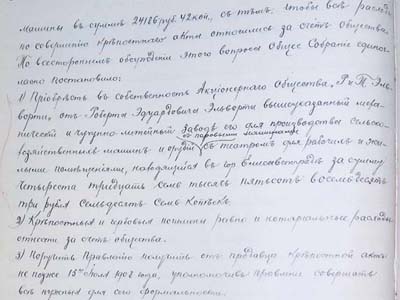 машины въ суммѣ 24186 руб. 42 коп., съ тѣмъ, чтобы всѣ расходы
по совершенію крѣпостного акта относились за счетъ Общества.
По всестороннемъ обсужденіи этого вопроса Общее Собраніе едино-
гласно постановило:
1) Пріобрѣсть въ собственность Акціонернаго Общества „Р и Т Эль-
ворти, отъ Роберта Эдуардовича Эльворти вышеуказанный меха-
ническій и чугунно-литейный заводъ его для производства сельско-
съ паровыми машинами
хозяйственныхъ машинъ и орудій съ театромъ для рабочихъ и жи-
лыми помѣщеніями, находящійся въ гор Елисаветградѣ за сумму
четыреста тридцать семь тысячъ пятьсотъ восемьдесятъ
три рубля семьдесятъ семь копѣекъ.
2) Крѣпостныя и гербовыя пошлины равно и нотаріальные расходы
отнести за счетъ общества.
3) Поручить Правленію получить отъ продавца крѣпостной актъ
не позже 15го Іюля 1908 года, уполномочивъ правленіе совершать
всѣ нужныя для сего формальности.